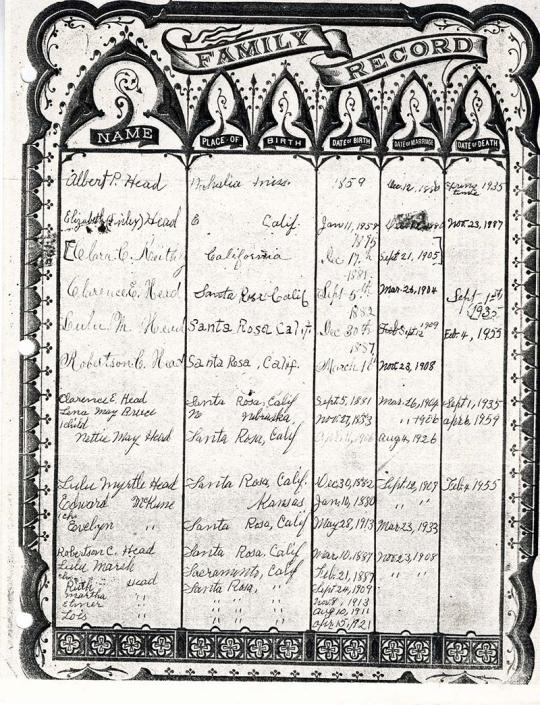 FAMILY RECORD
NAME PLACE OF BIRTH DATE OF BIRTH DATE OF MARRIAGE DATE OF DEATH
Albert P. Head 1859 Dec. 12, Spring time 1935
Elizabeth (Finley) Head Calif. Jan 11, Nov. 23, 1937
1875
[Clara C. California Dec 17, th Sept 21, 1905]
1881
Clarence E. Head Santa Rosa Calif Sept 5th Mar. 26, 1904 Sept - 1st 1935
1882
Lulu M. Head Santa Rosa Calif. Dec 30th Sept 12 1909 Feb. 4, 1955
1887
Robertson C. Head Santa Rosa, Calif. March Nov. 23, 1908
Clarence E. Head Santa Rosa, Calif Sept 5, 1881 Mar. 26, 1904 Sept 1, 1935
Lena May Bruce Nebraska, Nov. 27, 1883 " 1906 Apr 6, 1959
child
Nettie May Head Santa Rosa, Calif Aug 4, 1926
Lulu Myrtle Head Santa Rosa, Calif. Dec 30, 1882 Sept 12, 1909 Feb. 4 1955
Edward McKune Kansas Jan. 10, 1880 " "
Evelyn " Santa Rosa, Calif May 28, 1913 Mar 23, 1933
Robertson C. Head Santa Rosa, Calif Mar. 10, 1887 Nov. 23, 1908
Lulu Marsh Sacramento, Calif Feb. 21, 1887 " "
Ruth Head Santa Rosa, " Sept 24, 1909
Martha " " " " Nov 8, 1913
Elmer " " " " Aug 12, 1911
Lois " " " " Apr 15, 1921